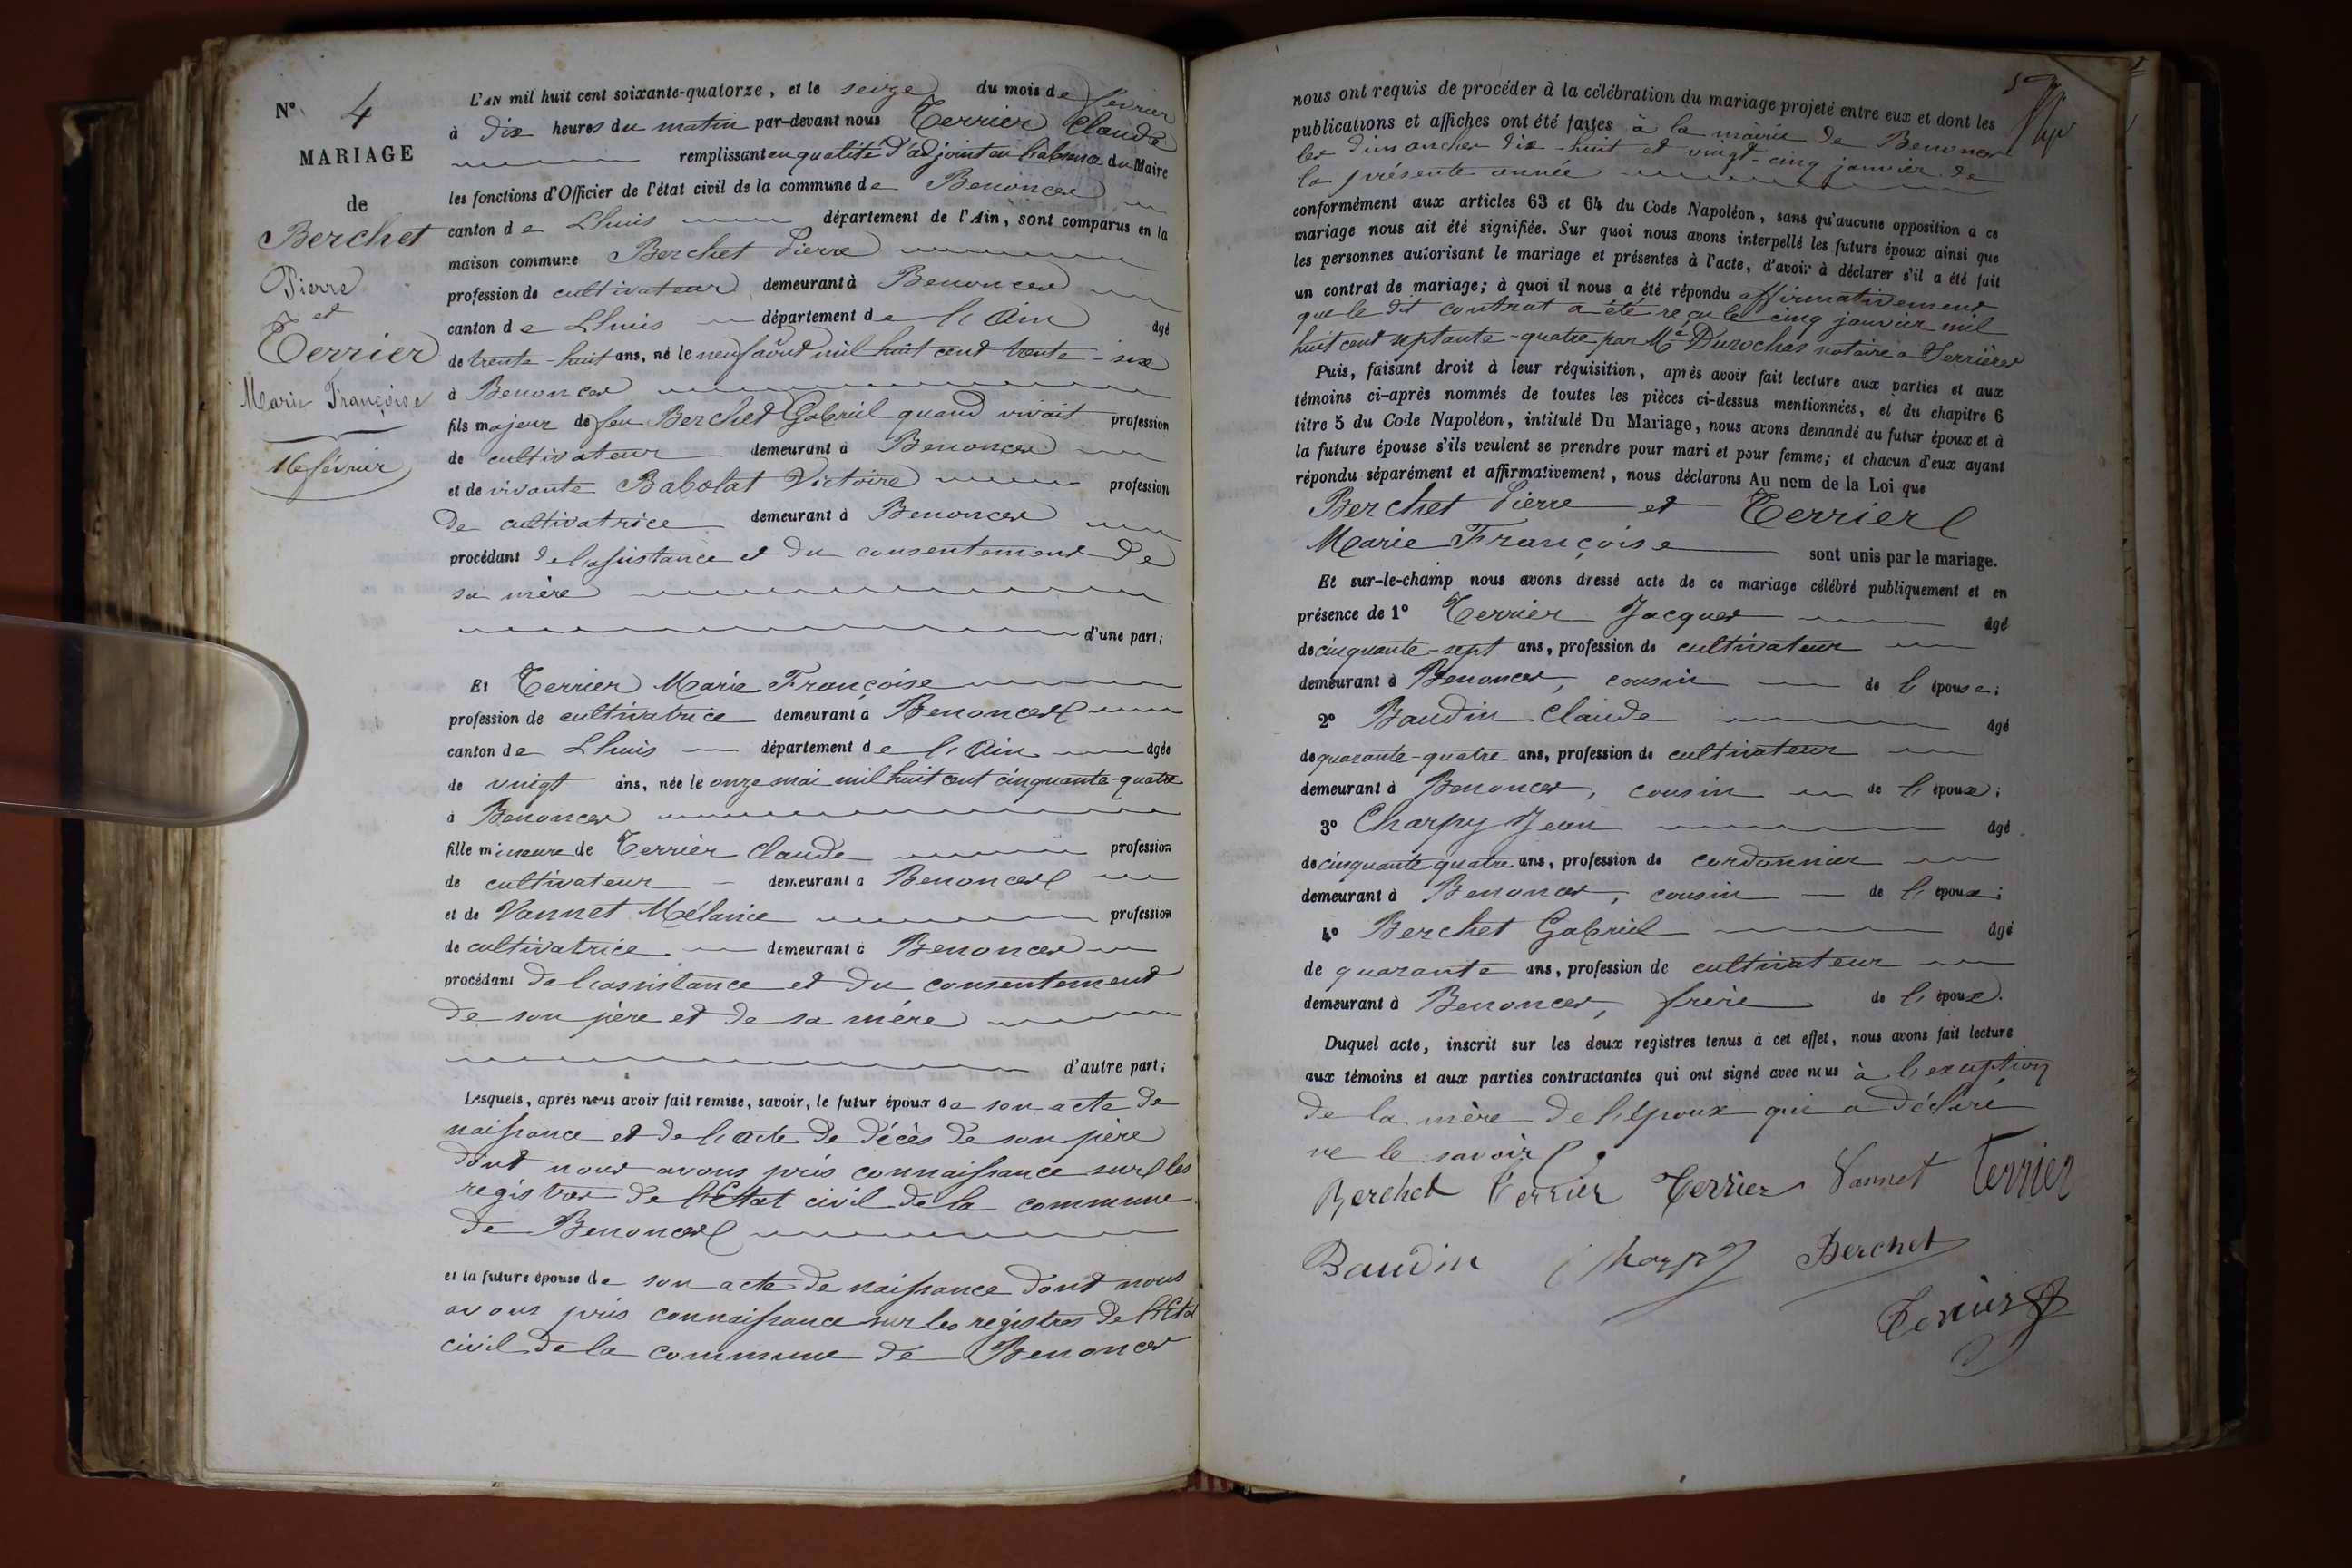 N° 4
MARIAGE
de
Berchet
Pierre
et
Terrier
Marie Françoise
16 février
L'AN mil huit cent soixante-quatorze, et le seize du mois de février
à dix heures du matin par-devant nous Terrier Claude
remplissant en qualité d'adjoint en l'absence du Maire
les fonctions d'Officier de l'état civil de la commune de Benonces
canton de Lhuis département de l'Ain, sont comparus en la
maison commune Berchet Pierre
profession de cultivateur demeurant à Benonces
canton de Lhuis département de l'Ain âgé
de trente-huit ans, né le neuf août mil huit cent trente-six
à Benonces
fils majeur de feu Berchet Gabriel quand vivait profession
de cultivateur demeurant à Benonces
et de vivante Babolat Victoire profession
de cultivatrice demeurant à Benonces
procédant de l'assistance et du consentement de
sa mère
d'une part;
Et Terrier Marie Françoise
profession de cultivatrice demeurant à Benonces
canton de Lhuis département de l'Ain âgée
de vingt ans, née le onze mai mil huit cent cinquante-quatre
à Benonces
fille mineure de Terrier Claude profession
de cultivateur demeurant à Benonces
et de Vannet Mélanie profession
de cultivatrice demeurant à Benonces
procédant de l'assistance et du consentement
de son père et de sa mère
d'autre part;
Lesquels, après nous avoir fait remise, savoir, le futur époux de son acte de
naissance et de l'acte de décès de son père
dont nous avons pris connaissance sur les
registres de l'Etat civil de la commune
de Benonces
et la future épouse de son acte de naissance dont nous
avons pris connaissance sur les registres de l'Etat
civil de la commune de Benonces
5
nous ont requis de procéder à la célébration du mariage projeté entre eux et dont les
publications et affiches ont été faites à la mairie de Benonces
les dimanches dix-huit et vingt-cinq janvier de
la présente année
conformément aux articles 63 et 64 du Code Napoléon, sans qu'aucune opposition a ce
mariage nous ait été signifiée. Sur quoi nous avons interpellé les futurs époux ainsi que
les personnes autorisant le mariage et présentes à l'acte, d'avoir à déclarer s'il a été fait
un contrat de mariage; à quoi il nous a été répondu affirmativement
que le dit contrat a été reçu le cinq janvier mil
huit cent septante-quatre par Me Durochas notaire à Serrières
Puis, faisant droit à leur réquisition, après avoir fait lecture aux parties et aux
témoins ci-après nommés de toutes les pièces ci-dessus mentionnées, et du chapitre 6
titre 5 du Code Napoléon, intitulé Du Mariage, nous avons demandé au futur époux et à
la future épouse s'ils veulent se prendre pour mari et pour femme; et chacun d'eux ayant
répondu séparément et affirmativement, nous déclarons Au nom de la Loi que
Berchet Pierre et Terrier
Marie Françoise sont unis par le mariage.
Et sur-le-champ nous avons dressé acte de ce mariage célébré publiquement et en
présence de 1° Terrier Jacques âgé
de cinquante-sept ans, profession de cultivateur
demeurant à Benonces, cousin de l'épouse;
2° Baudin Claude âgé
de quarante-quatre ans, profession de cultivateur
demeurant à Benonces, cousin de l'époux;
3° Charpy Jean âgé
de cinquante quatre ans, profession de cordonnier
demeurant à Benonces, cousin de l'époux;
4° Berchet Gabriel âgé
de quarante ans, profession de cultivateur
demeurant à Benonces, frère de l'époux.
Duquel acte, inscrit sur les deux registres tenus à cet effet, nous avons fait lecture
aux témoins et aux parties contractantes qui ont signé avec nous à l'exception
de la mère de l'époux qui a déclaré
ne le savoir
Berchet Terrier Terrier Vannet Terrier
Baudin Charpy Berchet
Terrier